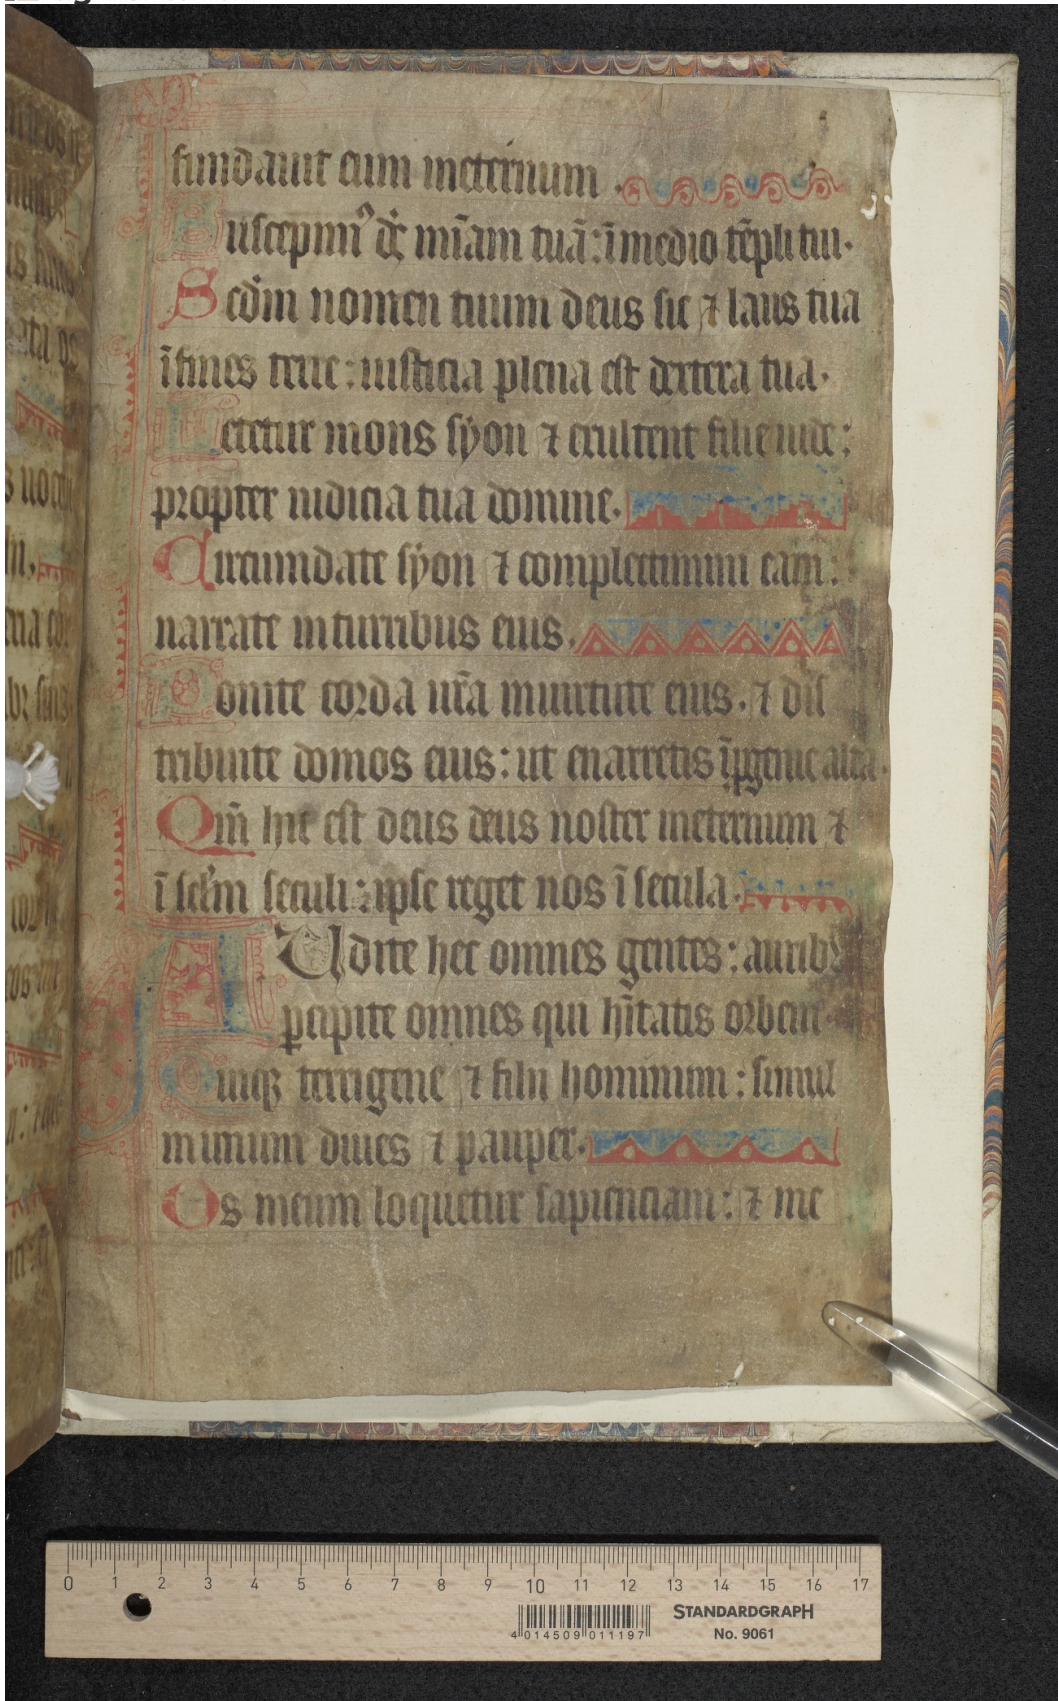 fundauit eum ineternum .
Suscepim᷒ ds̄ mīam tuā: ī medio tēpli tui.
Scdm̄ nomen tuum deus sic ⁊ laus tua
ī fines terre: iusticia plena est dextera tua.
Letetur mons syon ⁊ exultent filie iude:
propter iudicia tua domine.
Circumdate syon ⁊ complectimini eam:
narrate inturribus eius.
Ponite corda ur̄a inuirtute eius. ⁊ dis
tribuite domos eius: ut enarretis īꝓgenie alta.
Qm̄ hic est deus deus noster ineternum ⁊
ī sclm̄ seculi: ipse reget nos ī secula.
AUdite hec omnes gentes: aurib᷒
ꝑcipite omnes qui hītatis orbem.
Quiqꝫ terrigene ⁊ filii hominum: simul
inunum diues ⁊ pauper.
Os meum loquetur sapienciam: ⁊ me
0 1 2 3 4 5 6 7 8 9 10 11 12 13 14 15 16 17
STANDARDGRAPH
No. 9061
4 014509 011197